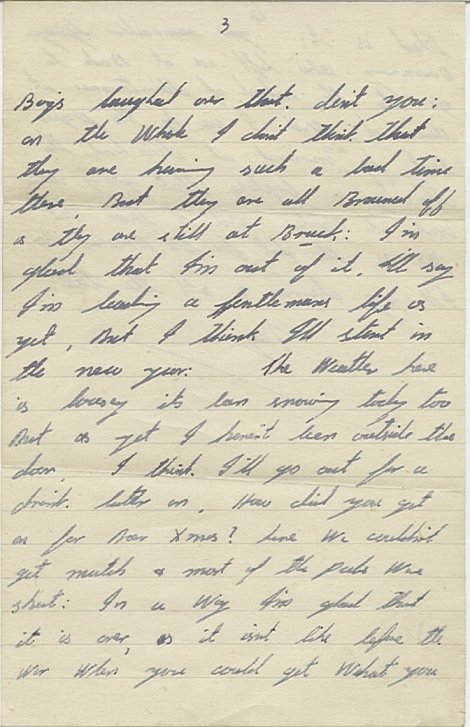 3
Boys laughed over that. dint you:
on the Whole I dint think that
they are having such a bad time
there, But they are all Browned off
as they are still at Bruck: I'm
glad that I'm out of it, I'll say
I'm leading a gentlemans life as
yet, But I think I'll start in
the new year: The Weather here
is lousey its been snowing today too
But as yet I havint been outside the
door, I think I'll go out for a
drink. later on, How did you get
on for Beer Xmas? here We couldint
get mutch as most of the pubs Were
shut: In a Way I'm glad that
it is over, as it isnt like before the
War When you could get What you